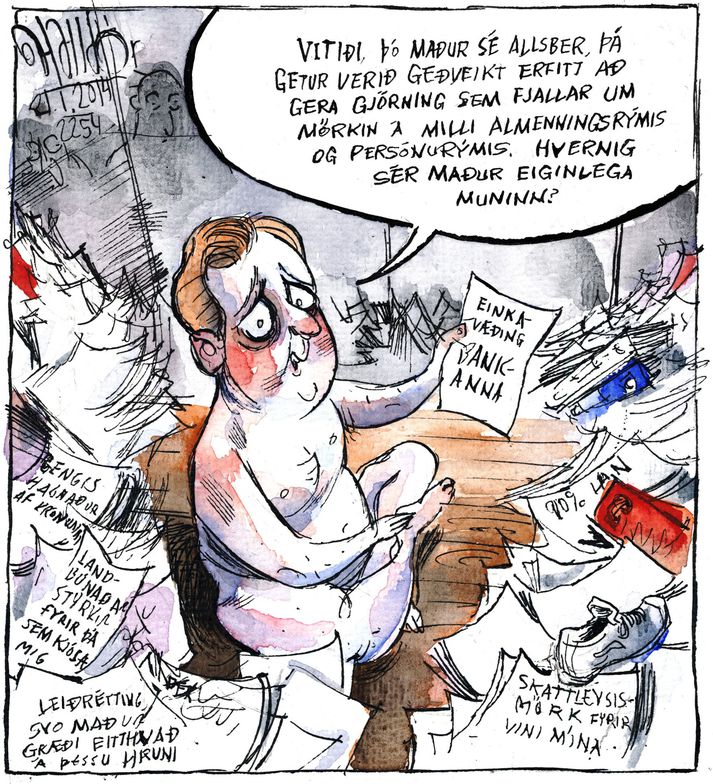 Halldór
2.1.2014
2254
VITIÐI, ÞÓ MAÐUR SÉ ALLSBER, ÞÁ
GETUR VERIÐ GEÐVEIKT ERFITT AÐ
GERA GJÖRNING SEM FJALLAR UM
MÖRKIN Á MILLI ALMENNINGSRÝMIS
OG PERSÓNURÝMIS. HVERNIG
SÉR MAÐUR EIGINLEGA
MUNINN?
EINKA-
VÆÐING
BANK-
ANNA
GENGIS
HAGNAÐUR
AF KRÓNUNNI
90% LÁN
LAND-
BÚNAÐAR
STYRKIR
FYRIR ÞÁ
SEM KJÓSA
MIG
LEIÐRÉTTING,
SVO MAÐUR
GRÆÐI EITTHVAÐ
Á ÞESSU HRUNI
SKATTLEYSIS-
MÖRK FYRIR
VINI MÍNA